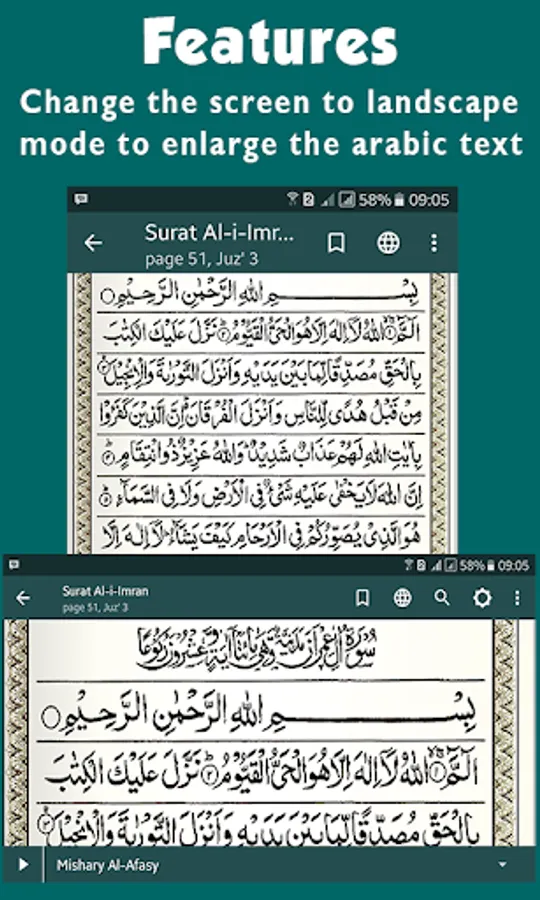 Features
Change the screen to landscape
mode to enlarge the arabic text
58% 09:05
Surat Al-i-Imr...
page 51, Juz' 3
بِسْــــــمِ اللهِ الرَّحْمٰنِ الرَّحِيْمِ
الٓمّٓ ۚ اللهُ لَاۤ اِلٰهَ اِلَّا هُوَ الْحَىُّ الْقَيُّوْمُ ؕ نَزَّلَ عَلَيْكَ الْكِتٰبَ
بِالْحَقِّ مُصَدِّقًا لِّمَا بَيْنَ يَدَيْهِ وَاَنْزَلَ التَّوْرٰىةَ وَالْاِنْجِيْلَ
مِنْ قَبْلُ هُدًى لِّلنَّاسِ وَاَنْزَلَ الْفُرْقَانَ اِنَّ الَّذِيْنَ كَفَرُوْا
بِاٰيٰتِ اللهِ لَهُمْ عَذَابٌ شَدِيْدٌ وَاللهُ عَزِيْزٌ ذُو انْتِقَامٍ
اِنَّ اللهَ لَا يَخْفٰى عَلَيْهِ شَىْءٌ فِى الْاَرْضِ وَلَا فِى السَّمَآءِ
هُوَ الَّذِىْ يُصَوِّرُكُمْ فِى الْاَرْحَامِ كَيْفَ يَشَآءُ لَاۤ اِلٰهَ اِلَّا
58% 09:05
Surat Al-i-Imran
page 51, Juz' 3
بِسْــــــمِ اللهِ الرَّحْمٰنِ الرَّحِيْمِ
الٓمّٓ ۚ اللهُ لَاۤ اِلٰهَ اِلَّا هُوَ الْحَىُّ الْقَيُّوْمُ ؕ نَزَّلَ عَلَيْكَ الْكِتٰبَ
بِالْحَقِّ مُصَدِّقًا لِّمَا بَيْنَ يَدَيْهِ وَاَنْزَلَ التَّوْرٰىةَ وَالْاِنْجِيْلَ
Mishary Al-Afasy